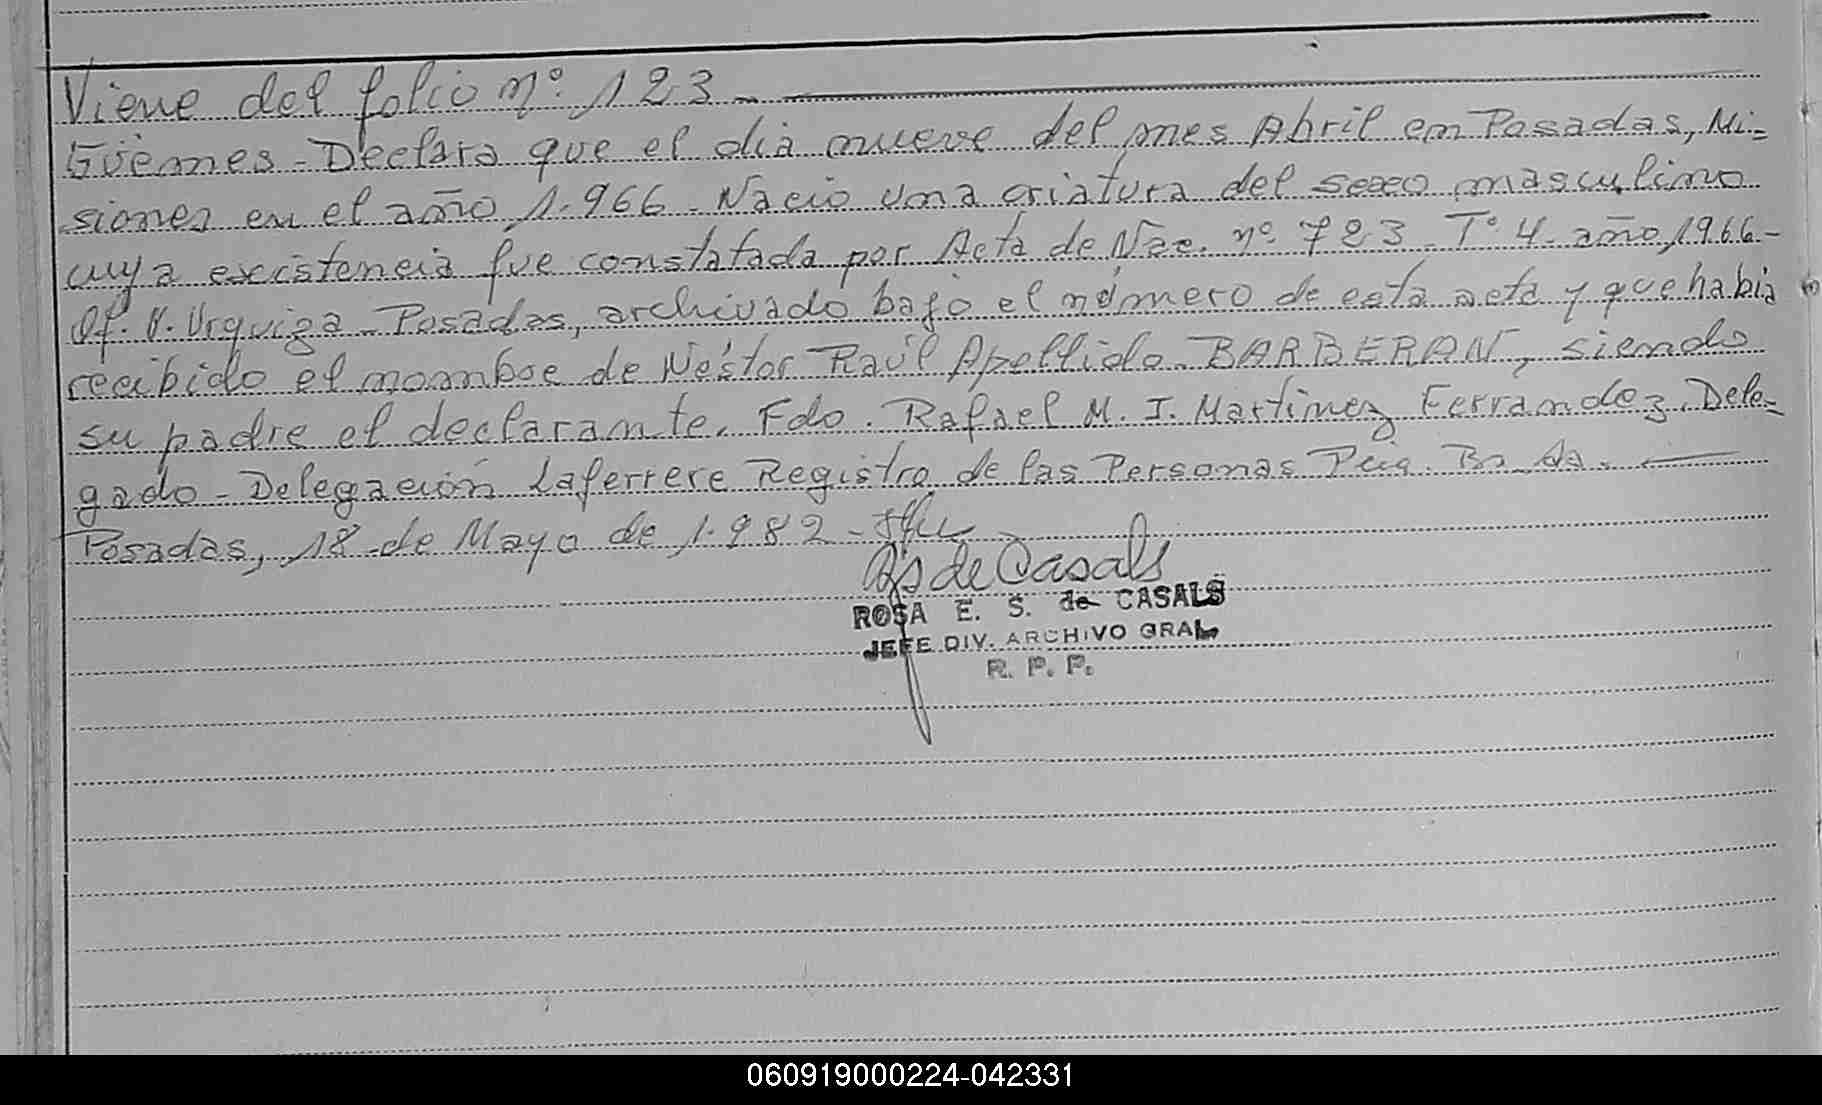 Viene del folio nº. 123 -
Güemes - Declara que el día nueve del mes Abril en Posadas, Mi=
siones en el año 1.966 - Nació una criatura del sexo masculino
cuya existencia fue constatada por Acta de Nac. nº. 723 - Tº 4 - año 1966 -
Of. V. Urquiza - Posadas, archivado bajo el número de esta acta y que había
recibido el nombre de Néstor Raúl Apellido BARBERAN, siendo
su padre el declarante. Fdo. Rafael M. I. Martinez Ferrandez, Dele-
gado - Delegación Laferrere Registro de las Personas Pcia. Bs. As.
Posadas, 18 de Mayo de 1.982 -
de Casals
ROSA E. S. de CASALS
JEFE DIV. ARCHIVO GRAL
R. P. P.
060919000224-042331